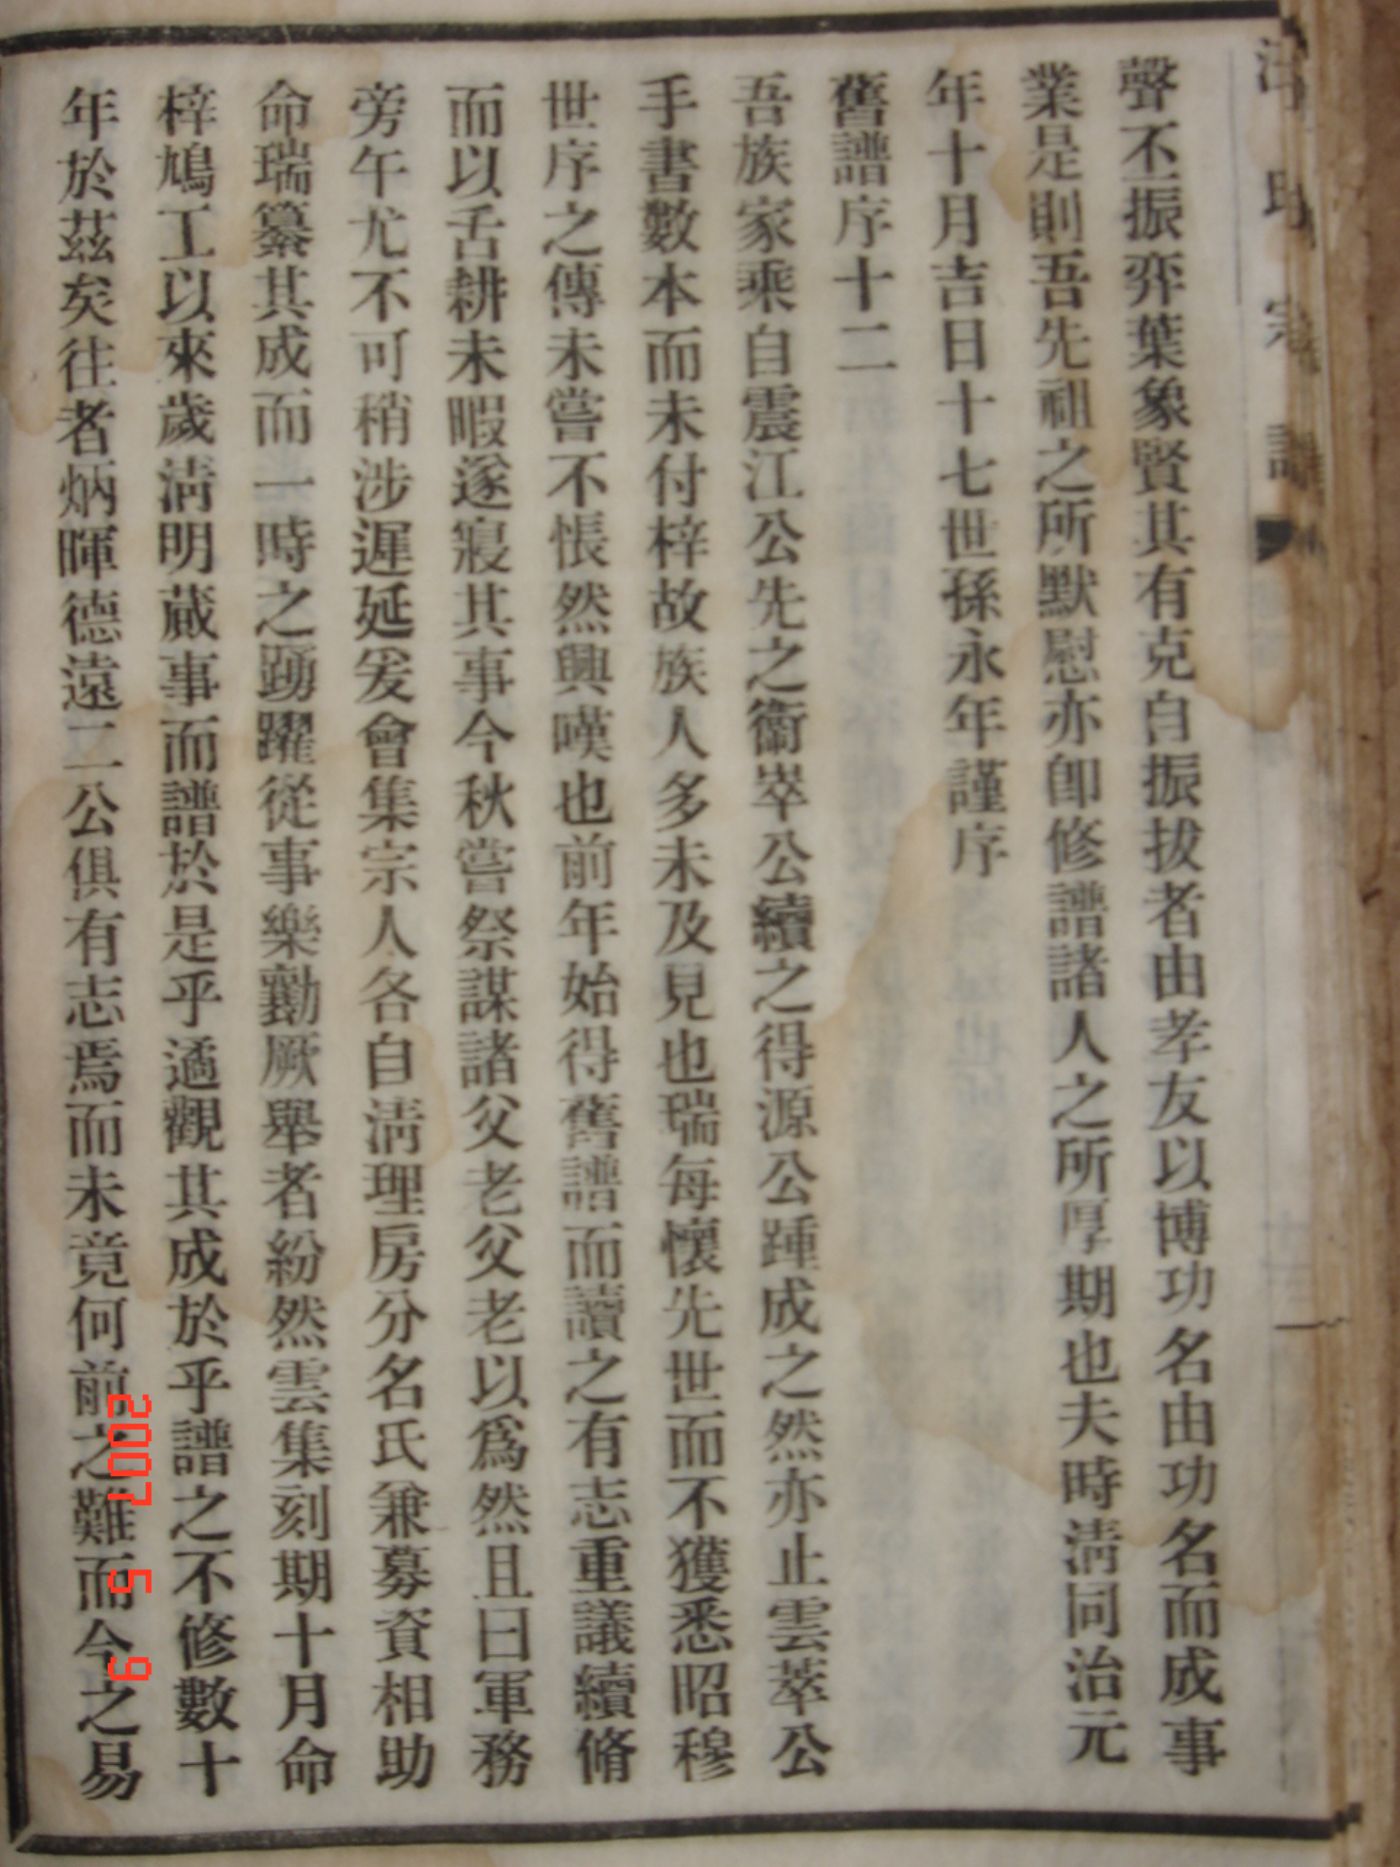 聲不振弈葉象賢其有克自振拔者由孝友以博功名由功名而成事
業是則吾先祖之所默慰亦卽修譜諸人之所厚期也夫時淸同治元
年十月吉日十七世孫永年謹序
舊譜序十二
吾族家乘自震江公先之衞崒公續之得源公踵成之然亦止雲萃公
手書數本而未付梓故族人多未及見也瑞每懷先世而不獲悉昭穆
世序之傳未嘗不悵然興嘆也前年始得舊譜而讀之有志重議續脩
而以舌耕未暇遂寢其事今秋嘗祭謀諸父老父老以爲然且曰軍務
旁午尤不可稍涉遲延爰會集宗人各自淸理房分名氏兼募資相助
命瑞纂其成而一時之踴躍從事樂勷厥舉者紛然雲集刻期十月命
梓鳩工以來歲淸明蕆事而譜於是乎遹觀其成於乎譜之不修數十
年於茲矣往者炳暉德遠二公俱有志焉而未竟何前之難而今之易
2007 5 9